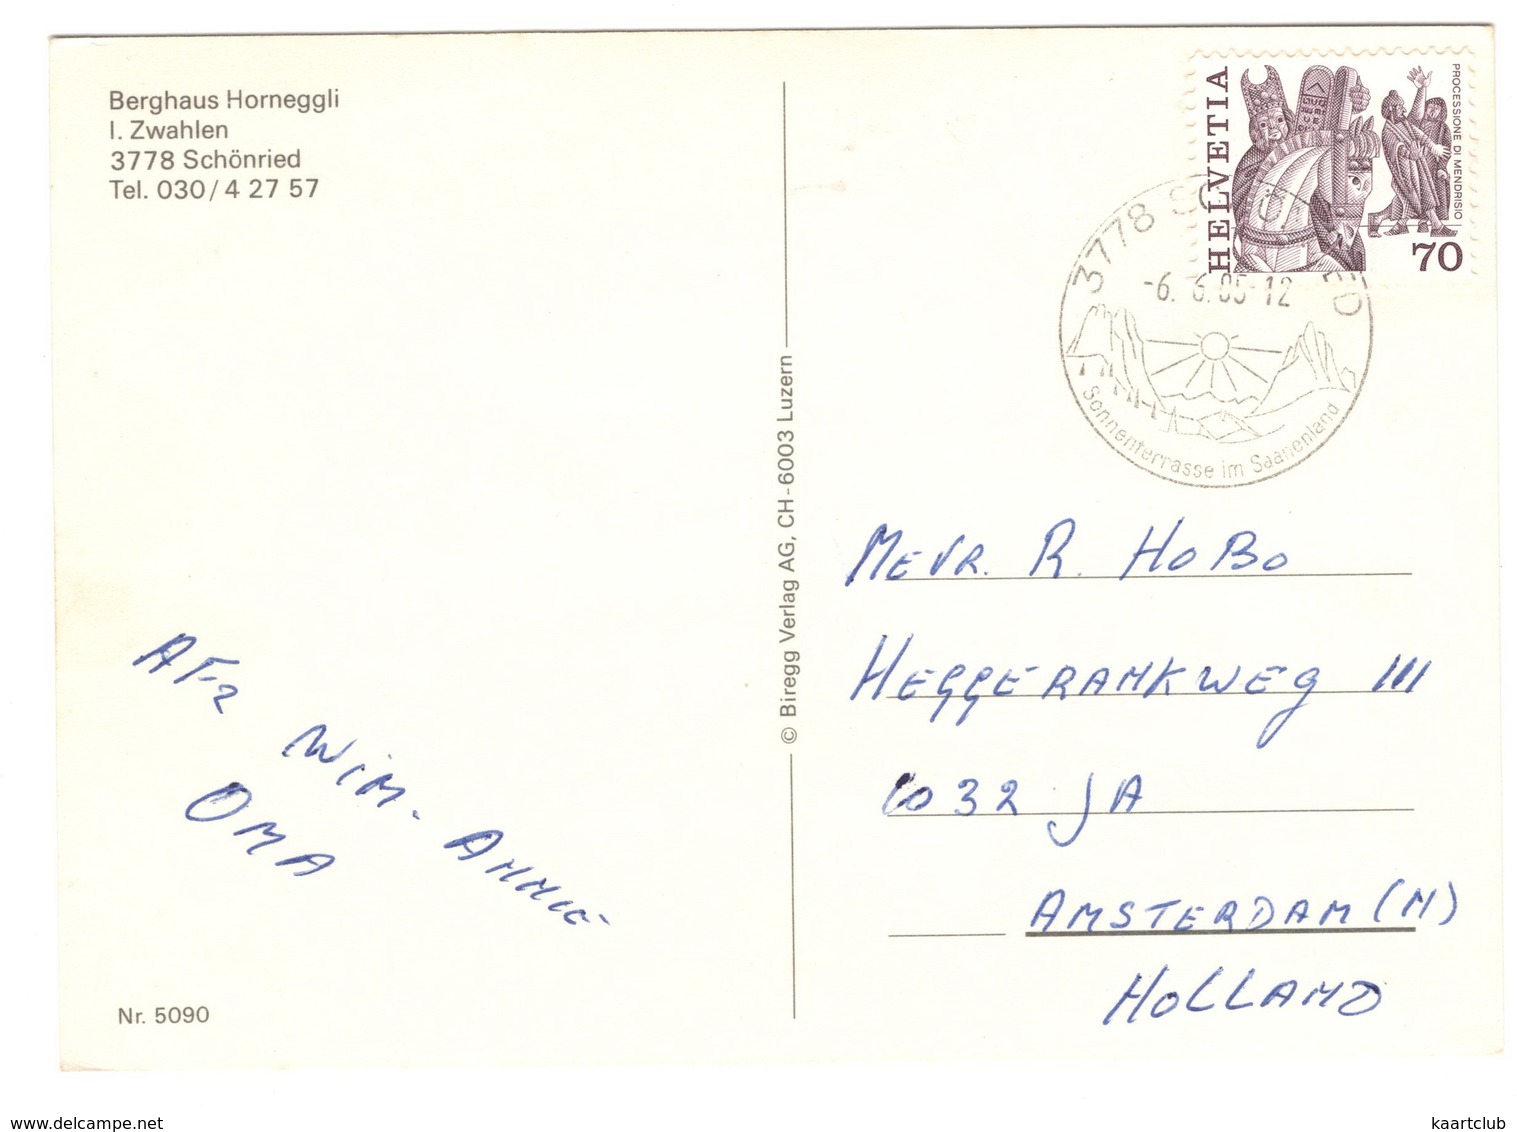 Berghaus Horneggli
I. Zwahlen
3778 Schönried
Tel. 030/4 27 57
HELVETIA
PROCESSIONE DI MENDRISIO
70
3778
-6. 6.85-12
Sonnenterrasse im Saanenland
© Biregg Verlag AG, CH-6003 Luzern
MEVR. R. HOBO
HEGGERANKWEG 111
1032 JA
AMSTERDAM (N)
HOLLAND
AFZ WIM - ANNIE
OMA
Nr. 5090
www.delcampe.net
kaartclub